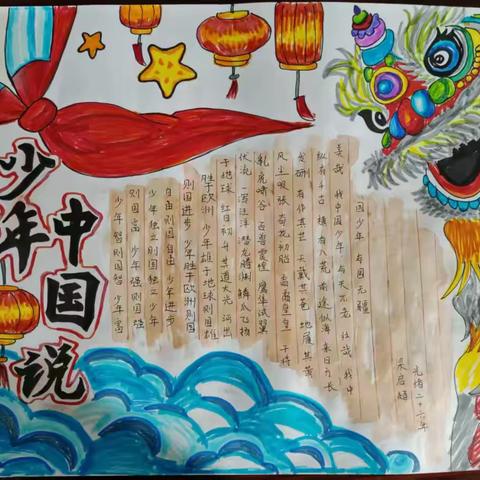 少年
中国说
少年智则国智 少年富
则国富 少年强则国强
少年独立则国独立 少年
自由则国自由 少年进步
则国进步 少年胜于欧洲则国
胜于欧洲 少年雄于地球则国雄
于地球 红日初升 其道大光 河出
伏流 一泻汪洋 潜龙腾渊 鳞爪飞扬
乳虎啸谷 百兽震惶 鹰隼试翼
风尘吸张 奇花初胎 矞矞皇皇 干将
发硎 有作其芒 天戴其苍 地履其黄
纵有千古 横有八荒 前途似海 来日方长
美哉 我中国少年 与天不老 壮哉 我中
国少年 与国无疆
梁启超
光绪二十六年